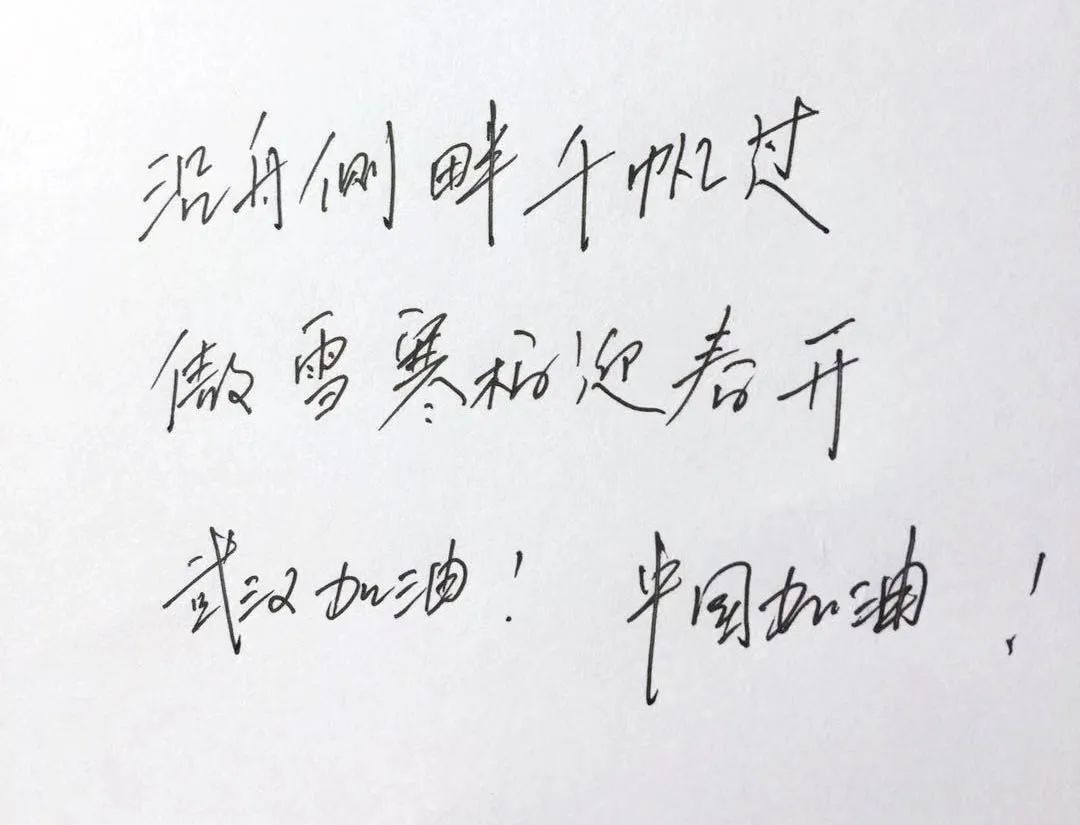 沿舟侧畔千帆过
傲雪寒梅迎春开
武汉加油！ 中国加油！